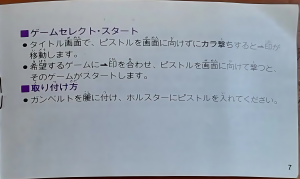 ■ゲームセレクト・スタート
●タイトル画面で、ピストルを画面に向けずにカラ撃ちすると➡印が
移動します。
●希望するゲームに➡印を合わせ、ピストルを画面に向けて撃つと、
そのゲームがスタートします。
■取り付け方
●ガンベルトを腰に付け、ホルスターにピストルを入れてください。
7